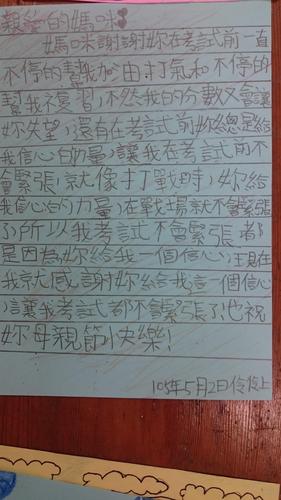 親愛的媽咪
媽咪謝謝妳在考試前一直
不停的幫我加由打氣和不停的
幫我複習,不然我的分數又會讓
妳失望,還有在考試前妳總是給
我信心的力量,讓我在考試前不
會緊張,就像打戰時,妳給
我信心的力量,在戰場就不會緊張
了,所以我考試不會緊張都
是因為妳給我一個信心,現在
我就感謝妳給我這一個信心
,讓我考試都不會緊張了,也祝
妳母親節快樂!
105年5月2日伶伶上